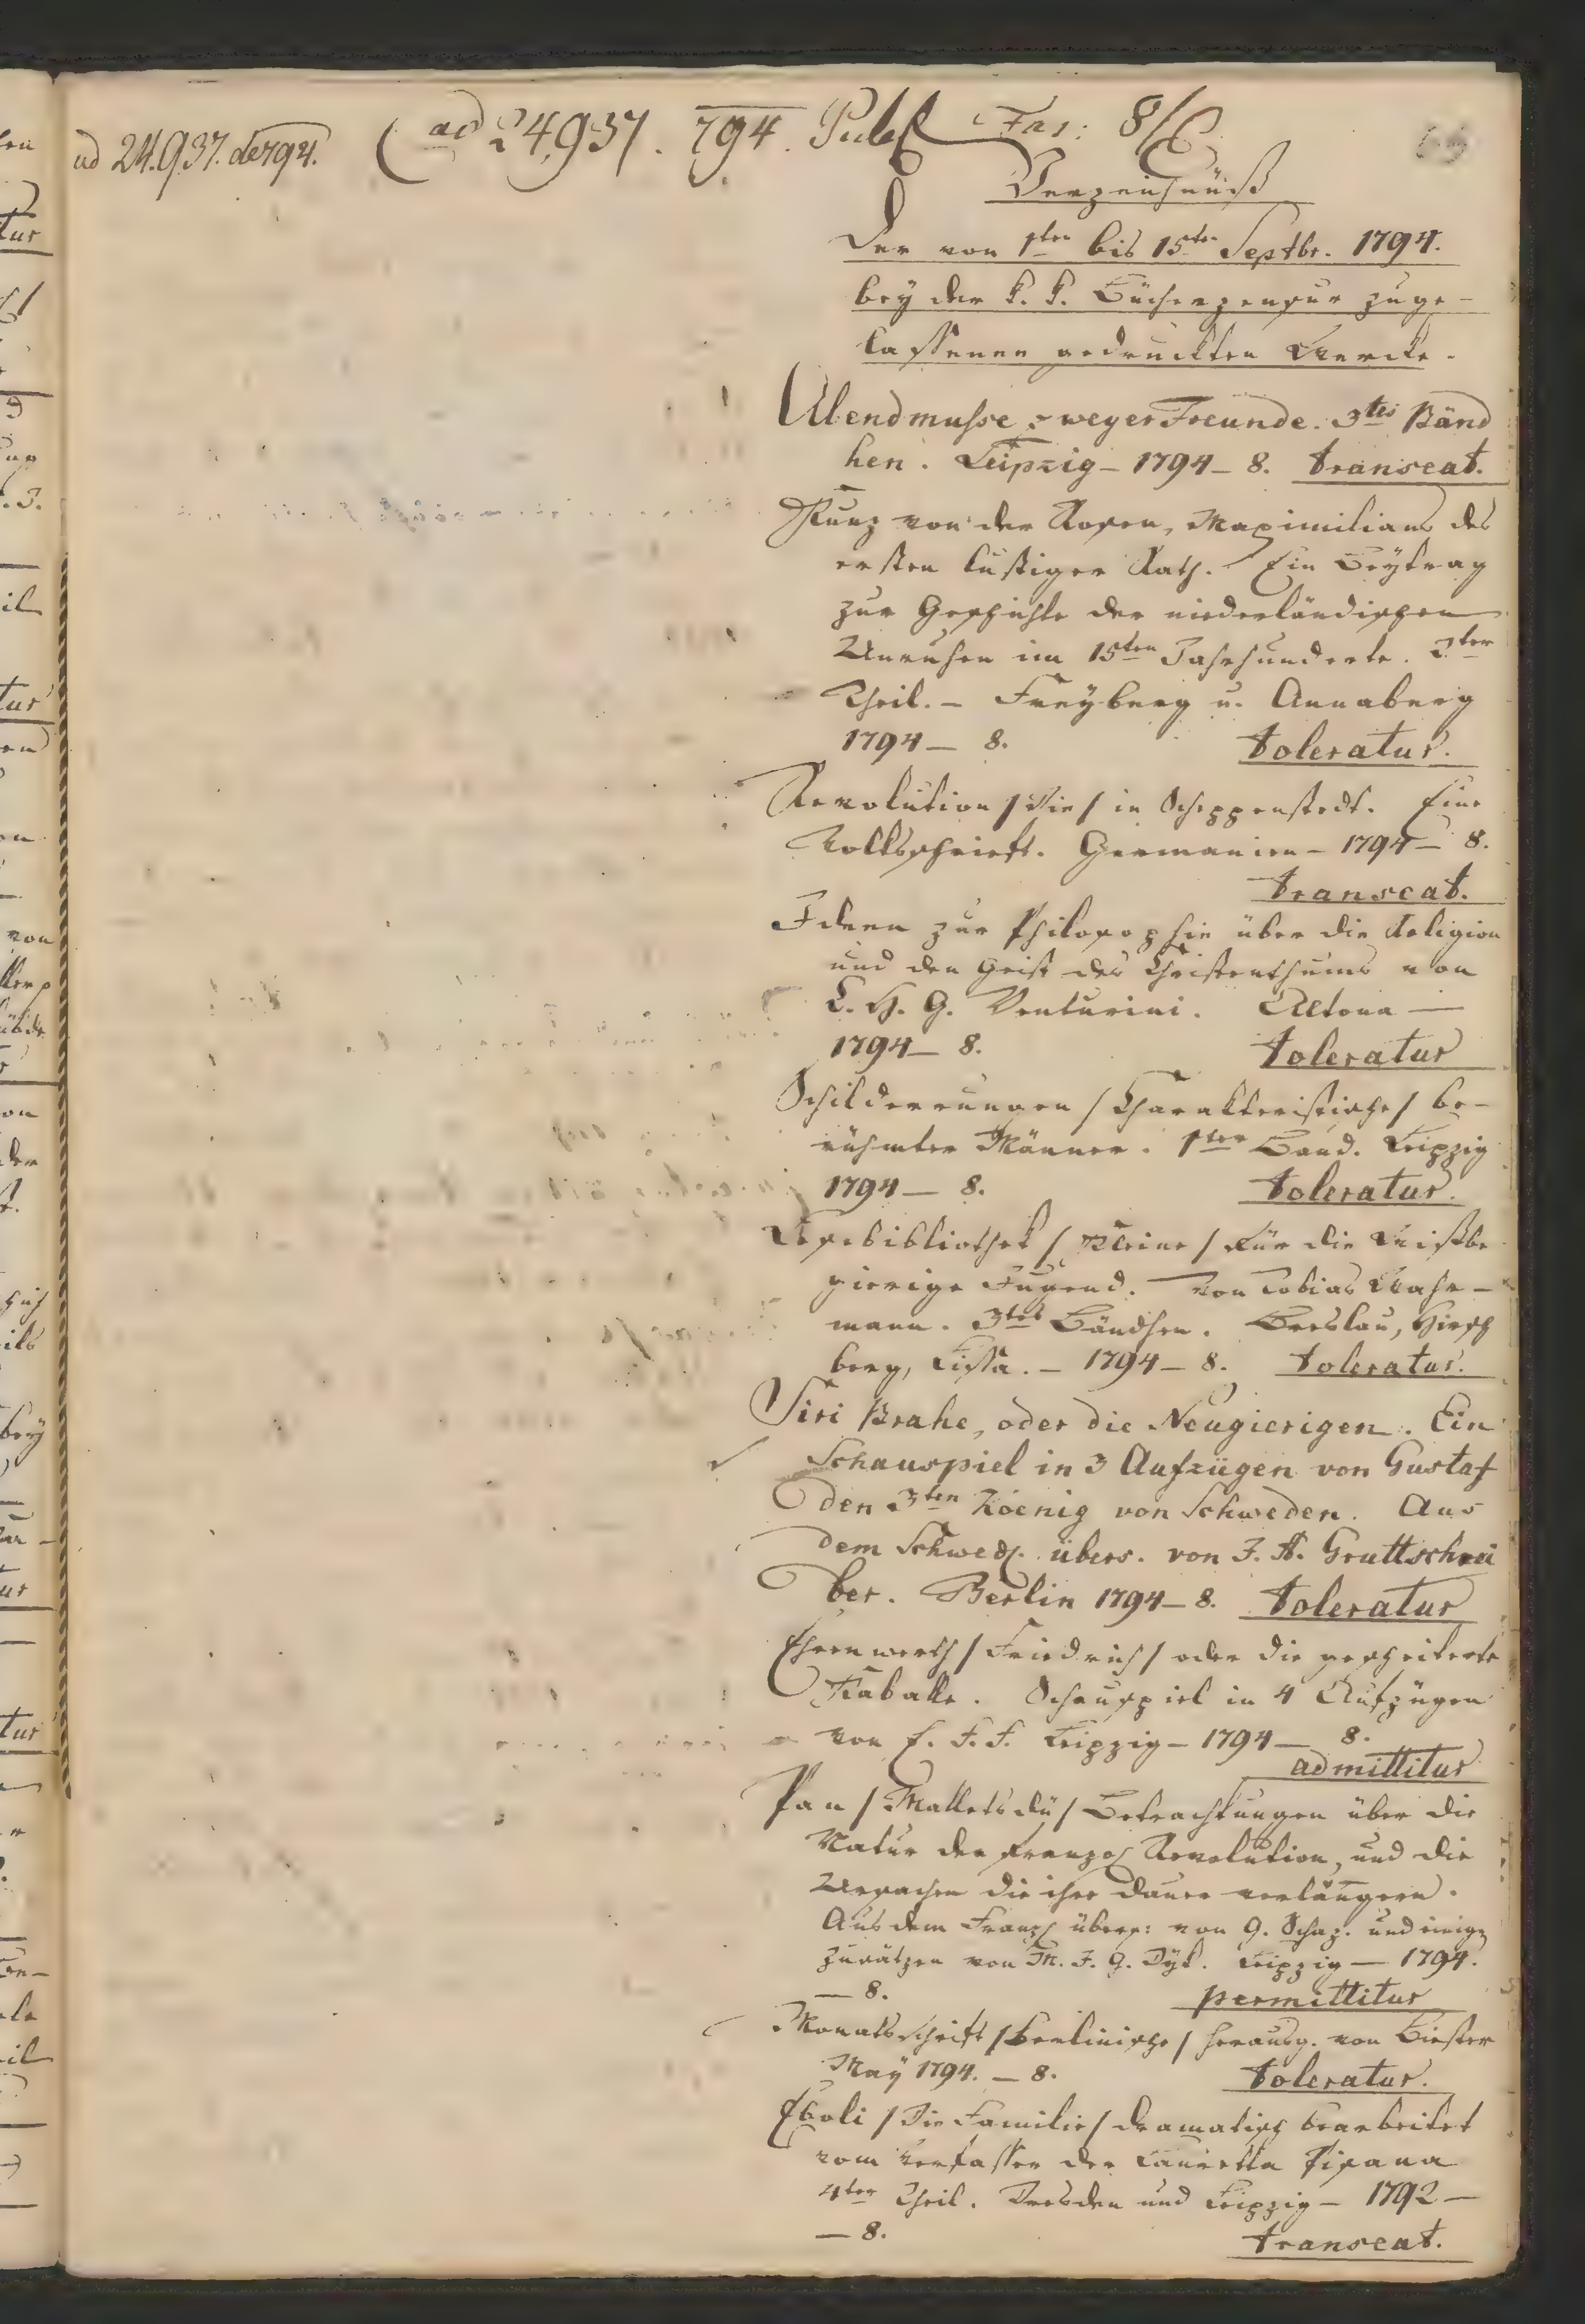 ad 24.937. de 794.
ad 24,937. 794. Publ Fas: 8/C
Verzeichnüß
Der von 1ten bis 15ten Septbr. 1794.
bey der k. k. Bücherzensur zuge-
lassenen gedruckten Wercke.
Abendmusse zweyer Freunde. 3tes Bänd
hen. Leipzig – 1794 – 8. transeat.
Kunz von der Rosen, Maximilians des
ersten lustiger Rath. Ein Beytrag
zur Geschichte der niederländischen
Unruhen im 15ten Jahrhunderte. 2ter
Theil. – Freyberg u. Annaberg
1794 – 8. toleratur.
Revolution / Die / in Scheppenstedt. Eine
Volksschrift. Germanien – 1794 – 8.
transeat.
Ideen zur Philosophie über die Religion
und den Geist des Christenthums von
C. H. G. Venturini. Altona –
1794 – 8. toleratur
Schilderungen / Charakteristische / be-
rühmter Männer. 1ter Band. Leipzig
1794 – 8. toleratur.
Lesebibliothek / Kleine / für die Wißbe
gierige Jugend. Von Tobias Wahr-
mann. 3tes Bändchen. Breslau, Hirsch
berg, Lissa. – 1794 – 8. toleratur.
Siri Brahe, oder die Neugierigen. Ein
Schauspiel in 3 Aufzügen von Gustaf
den 3ten Koenig von Schweden. Aus
dem Schwed. übers. von J. A. Gruttschrei
ber. Berlin 1794 – 8. toleratur
Ehrenwerth / Friedrich / oder die gescheiterte
Kaballe. Schauspiel in 4 Aufzügen
von E. F. F. Leipzig – 1794 – 8.
admittitur
Pan / Mallets dü / Betrachtungen über die
Natur der französ Revolution, und die
Ursachen die ihre Dauer verlängern.
Aus dem Franz übers: von G. Schaz. und einige
Zusätzen von M. J. G. Dyk. Leipzig – 1794.
– 8. permittitur
Monatsschrift / Berlinische / herausg. von Biester
May 1794. – 8. toleratur.
Eboli / Die Familie / dramatisch bearbeitet
vom Verfasser der Lauretta Pisana
4ter Theil. Dresden und Leipzig – 1792 –
– 8. transeat.